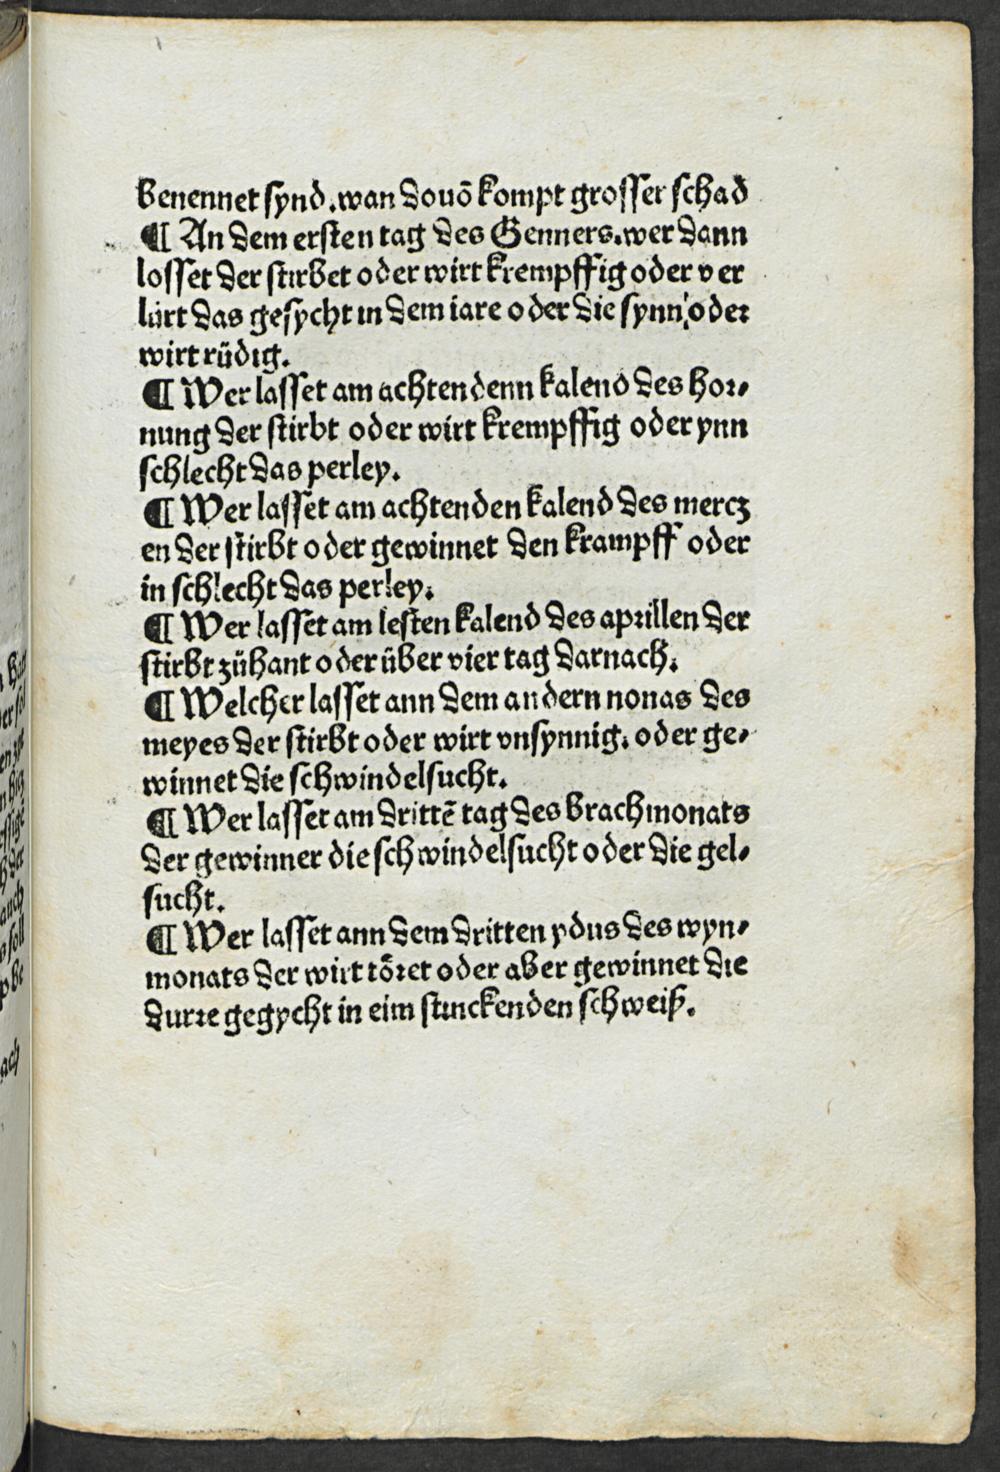 benennet synd.wan douō kompt grosser schad
¶ An dem ersten tag des Genners.wer dann
losset der stirbet oder wirt krempffig oder ver
lürt das gesycht in dem iare oder die synn oder
wirt rüdig.
¶ Wer lasset am achten denn kalend des hor-
nung der stirbt oder wirt krempffig oder ynn
schlecht das perley.
¶ Wer lasset am achtenden kalend des mercz
en der stirbt oder gewinnet den krampff oder
in schlecht das perley.
¶ Wer lasset am lesten kalend des aprillen der
stirbt zühant oder über vier tag darnach.
¶ Welcher lasset ann dem andern nonas des
meyes der stirbt oder wirt vnsynnig. oder ge-
winnet die schwindelsucht.
¶ Wer lasset am drittē tag des brachmonats
der gewinner die schwindelsucht oder die gel-
sucht.
¶ Wer lasset ann dem dritten ydus des wyn-
monats der wirt töret oder aber gewinnet die
durre gegycht in eim stinckenden schweiß.